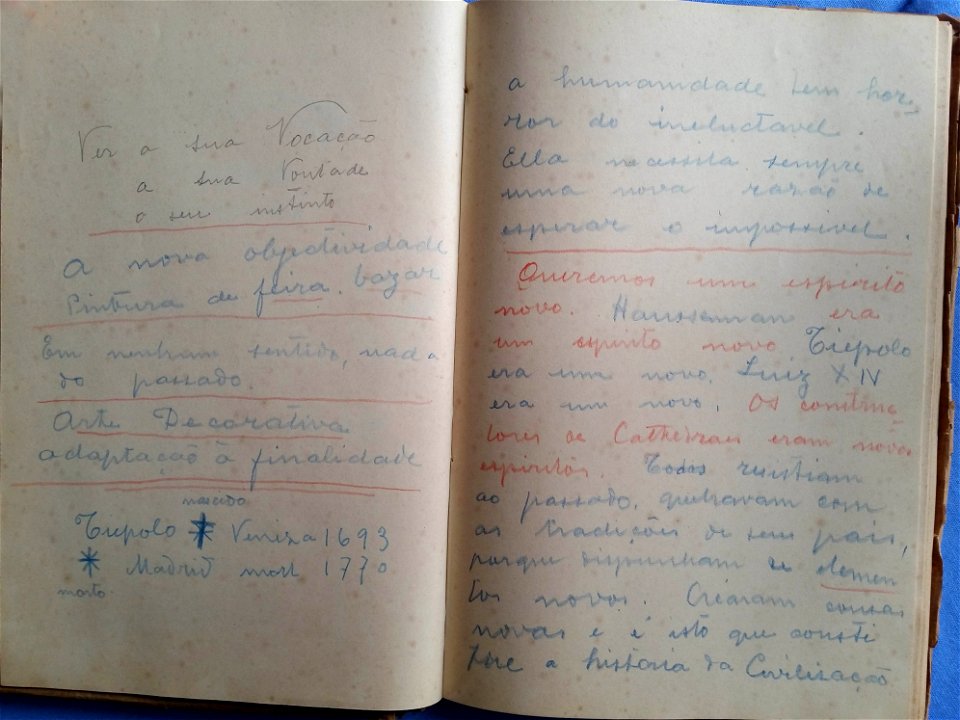 Ver a sua Vocação
a sua Vontade
o seu instinto
A nova objetividade
Pintura de feira. bazar
Em nenhum sentido, nada
do passado.
Arte Decorativa
adaptação à finalidade
nascido
Tiepolo * Veniza 1693
* Madrid mort 1770
morto.
a humanidade tem hor-
ror do ineluctavel.
Ella necessita sempre
uma nova razão de
esperar o impossivel.
Queremos um espirito
novo. Haussman era
um espirito novo Tiépolo
era um novo. Luiz XIV
era um novo. Os constru
tores de Cathedraes eram novos
espiritos. Todos resistiam
ao passado, quebravam com
as tradições de seu pais,
porque dispunham de elemen
tos novos. Crearam cousas
novas e é isto que consti
tue a historia da Civilisação